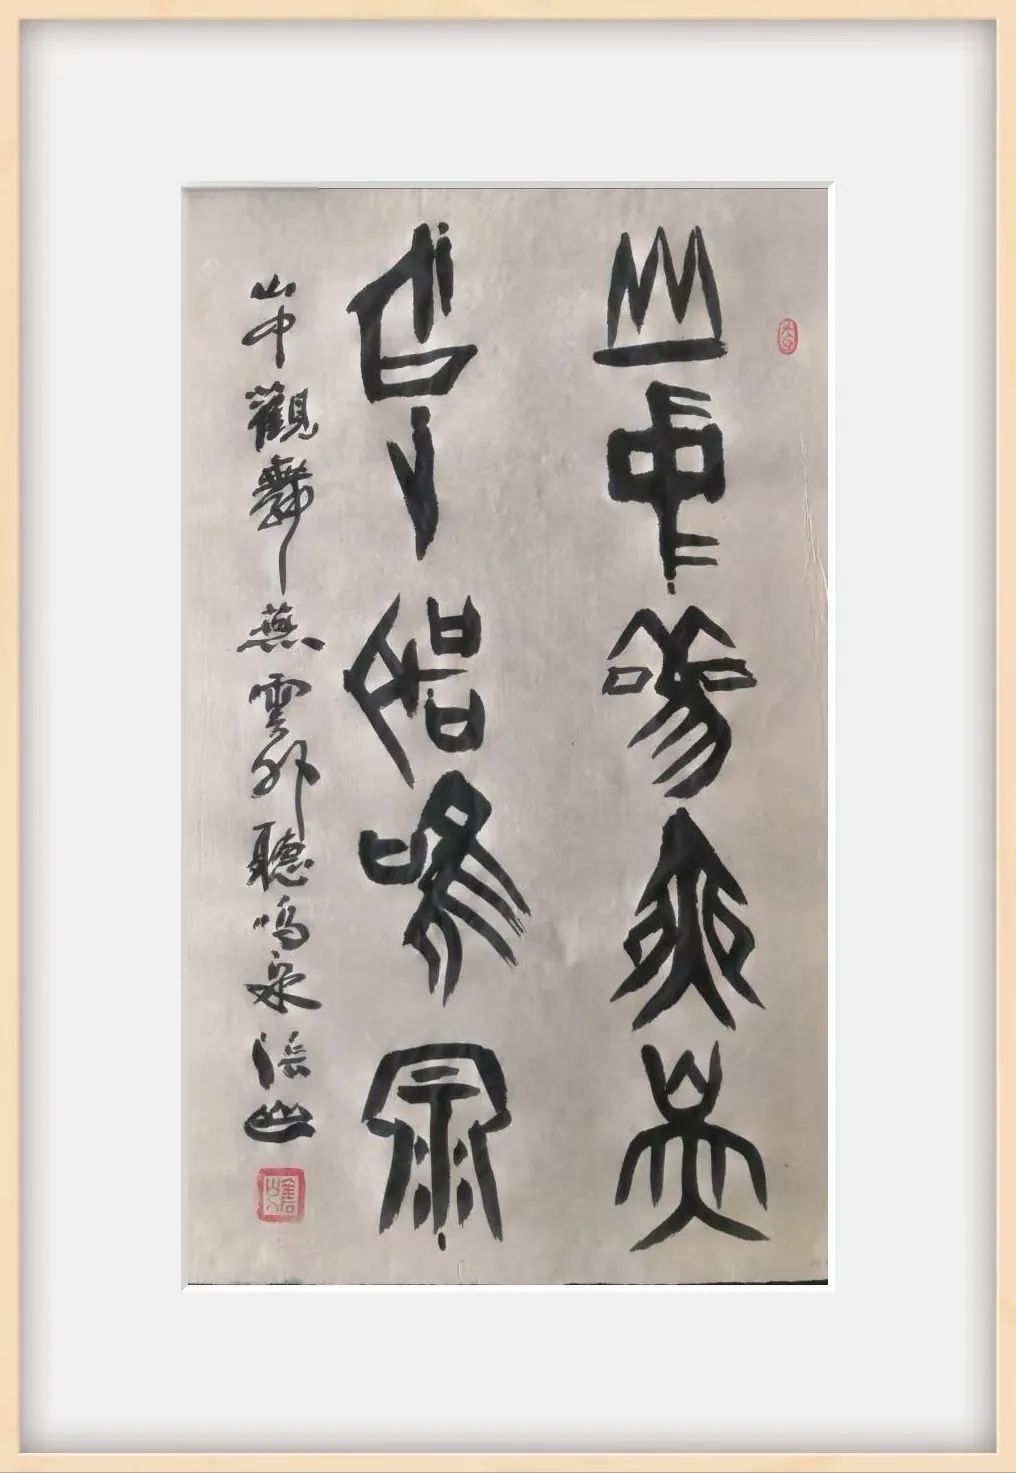 山中觀舞燕
雲外聽鳴泉
山中觀舞燕雲外聽鳴泉 山